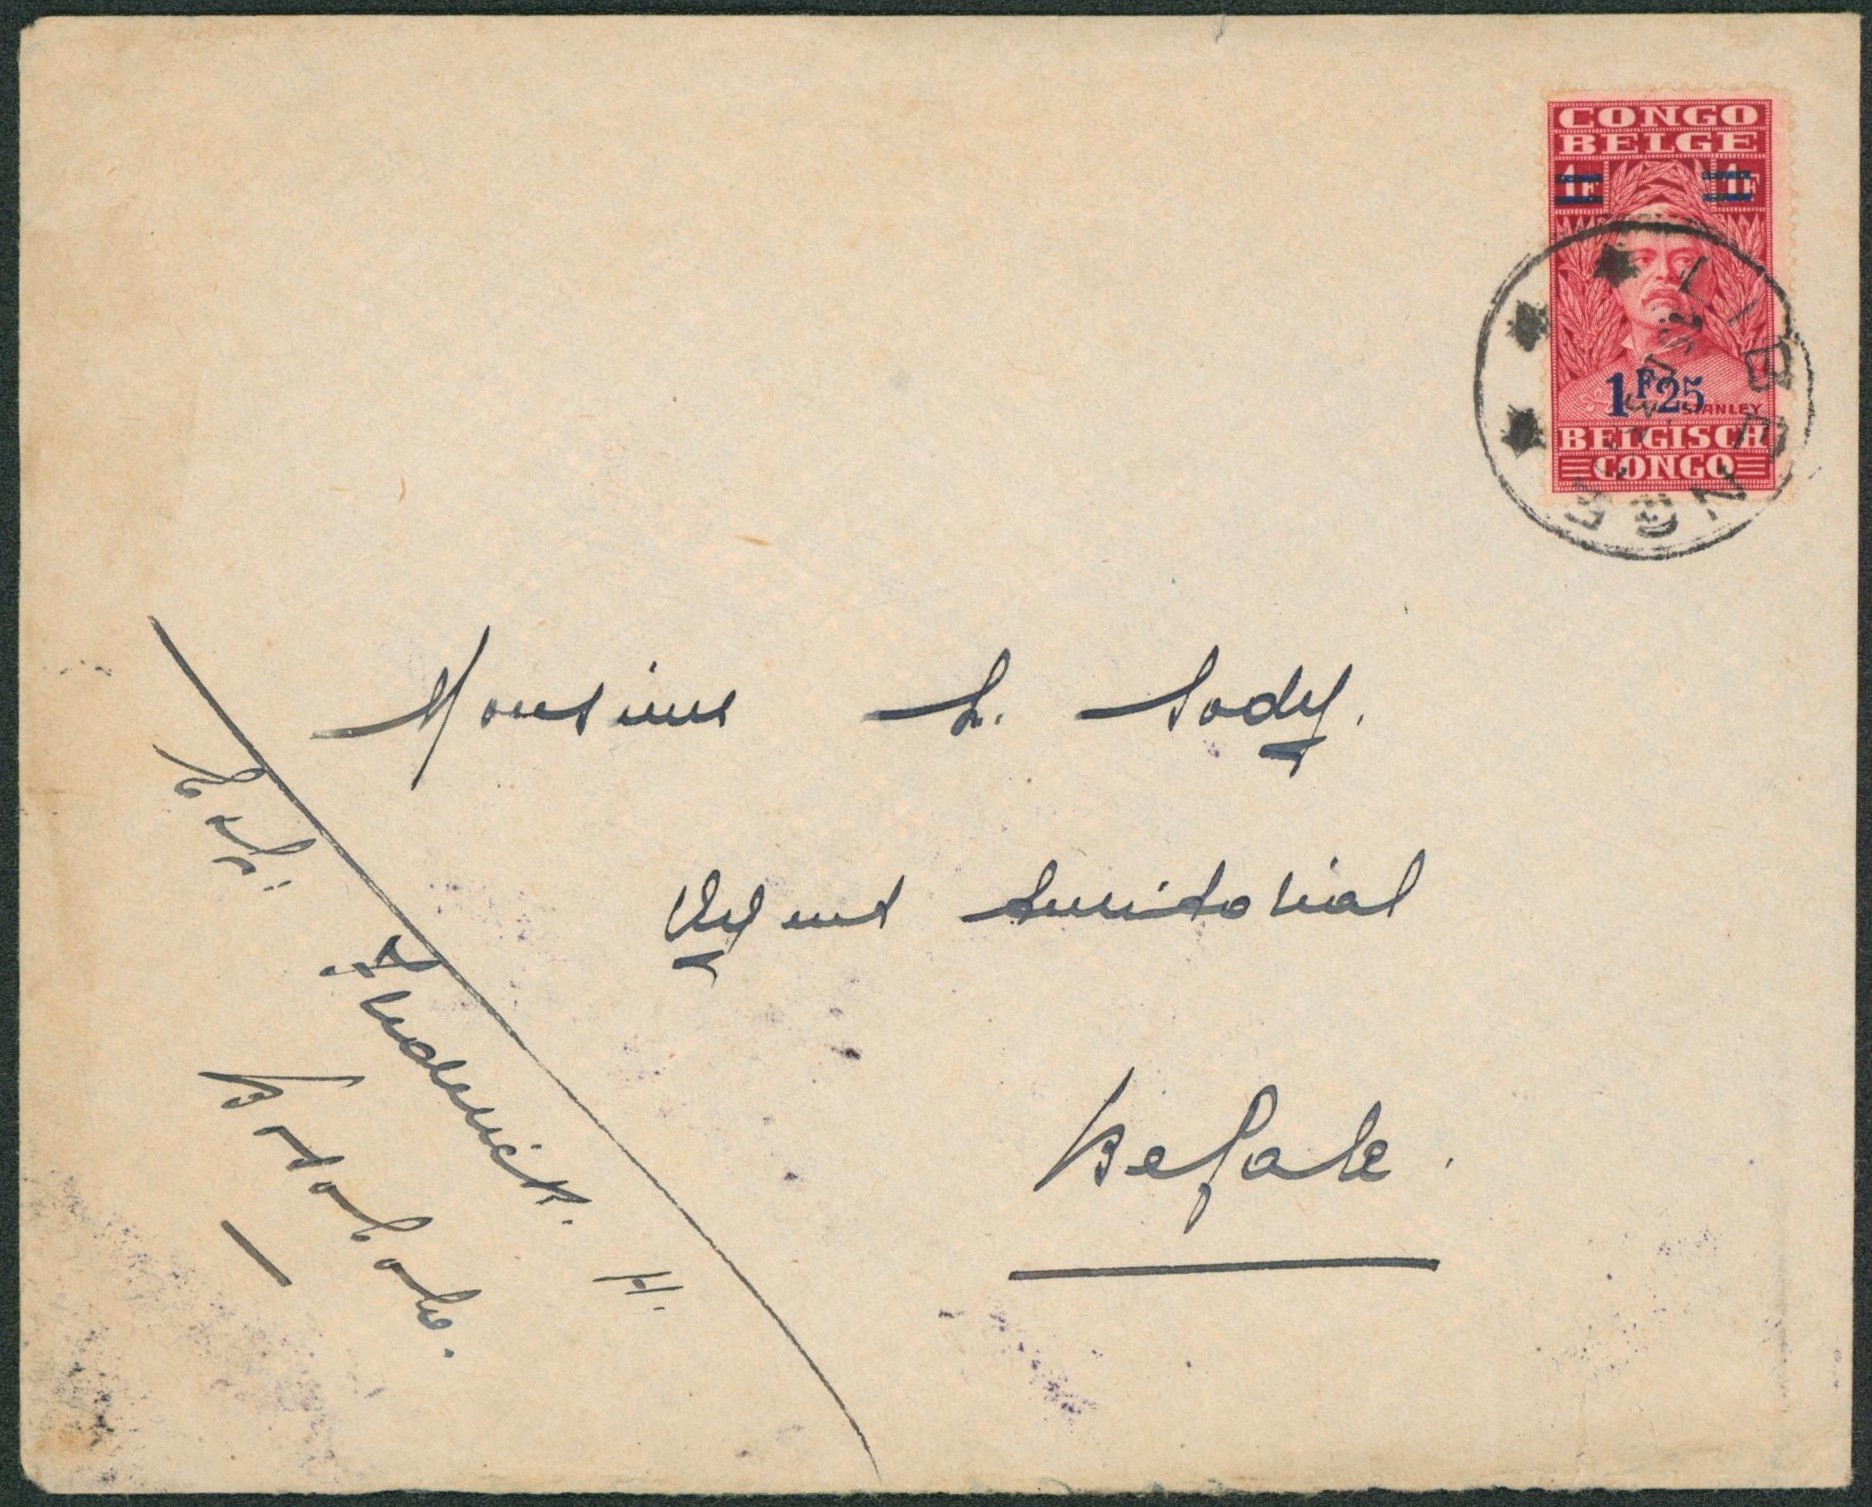 CONGO
BELGE
1F 1F
1F25
STANLEY
BELGISCH
CONGO
LIBENGE
Monsieur L. Sody.
Agent territorial
Befale.
Frederick. H.